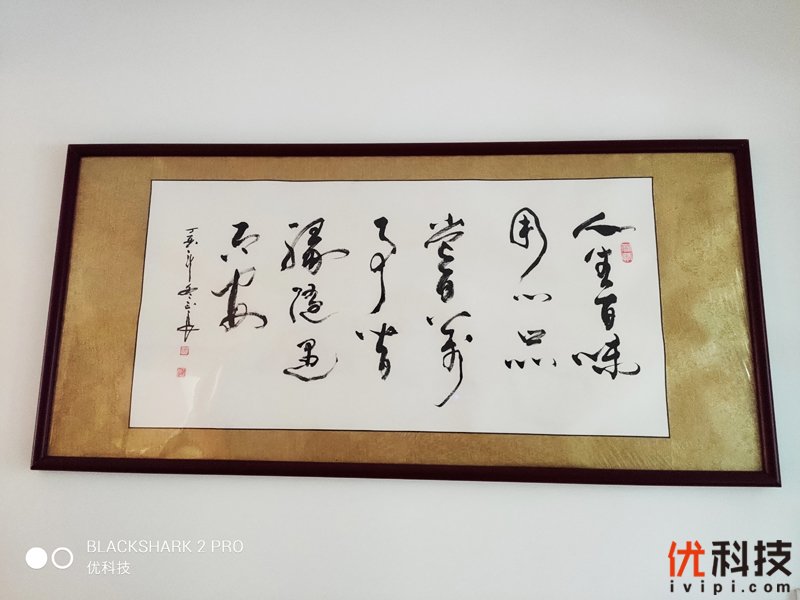 人生百味
用心品
尝百万
事皆
缘随遇
而安
BLACKSHARK 2 PRO
优科技
优科技
ivipi.com